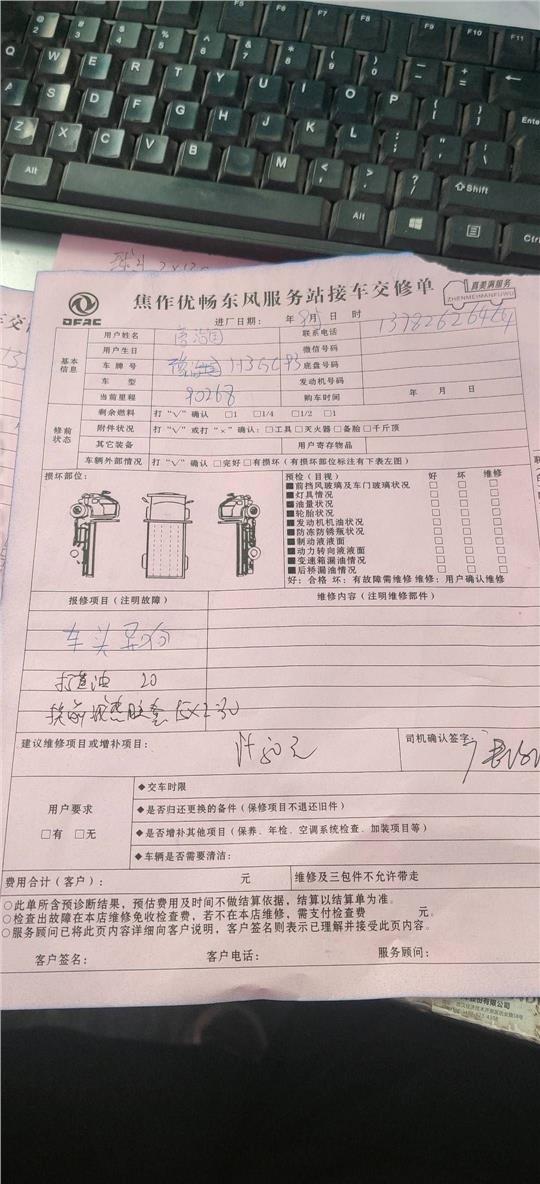 F5 F6 F7 F8 F9 F10 F11
# 3 $ 4 % 5 ^ 6 & 7 * 8 ( 9 ) 0
Q W E R T Y U I O P
A S D F G H J K L Enter
Z X C V B N M Shift
Alt Alt Ctrl
焦作优畅东风服务站接车交修单
DFAC
真美满服务
ZHENMEIMANFUWU
进厂日期: 年 8月 日 时
基本信息
用户姓名 联系电话
用户生日 微信号码
车牌号 底盘号码
车 型 发动机号码
当前里程 90268 购车时间 年 月 日
修前状态
剩余燃料 打“√”确认 □1 □1/4 □1/2 □1
附件状况 打“√”或打“×”确认: □工具 □灭火器 □备胎 □千斤顶
其它装备 用户寄存物品
车辆外部情况 打“√”确认 □完好 □有损坏(有损坏部位标注有下表左图)
损坏部位:
预检(目视) 好 坏 维修
■前挡风玻璃及车门玻璃状况 □ □ □
■灯具情况 □ □ □
■油量状况 □ □ □
■轮胎状况 □ □ □
■发动机机油状况 □ □ □
■防冻防锈瓶状况 □ □ □
■制动液液面 □ □ □
■动力转向液液面 □ □ □
■变速箱漏油情况 □ □ □
■后桥漏油情况 □ □ □
好: 合格 坏: 有故障需维修 维修: 用户确认维修
报修项目(注明故障) 维修内容(注明维修部件)
车头异响
打黄油 20
建议维修项目或增补项目:
司机确认签字:
用户要求
□有 □无
◆交车时限
◆是否归还更换的备件(保修项目不退还旧件)
◆是否增补其他项目(保养、年检、空调系统检查、加装项目等)
◆车辆是否需要清洁:
费用合计(客户): 元 维修及三包件不允许带走
○此单所含预诊断结果,预估费用及时间不做结算依据,结算以结算单为准。
○检查出故障在本店维修免收检查费,若不在本店维修,需支付检查费 元。
○服务顾问已将此页内容详细向客户说明,客户签名则表示已理解并接受此页内容。
客户签名: 客户电话: 服务顾问: